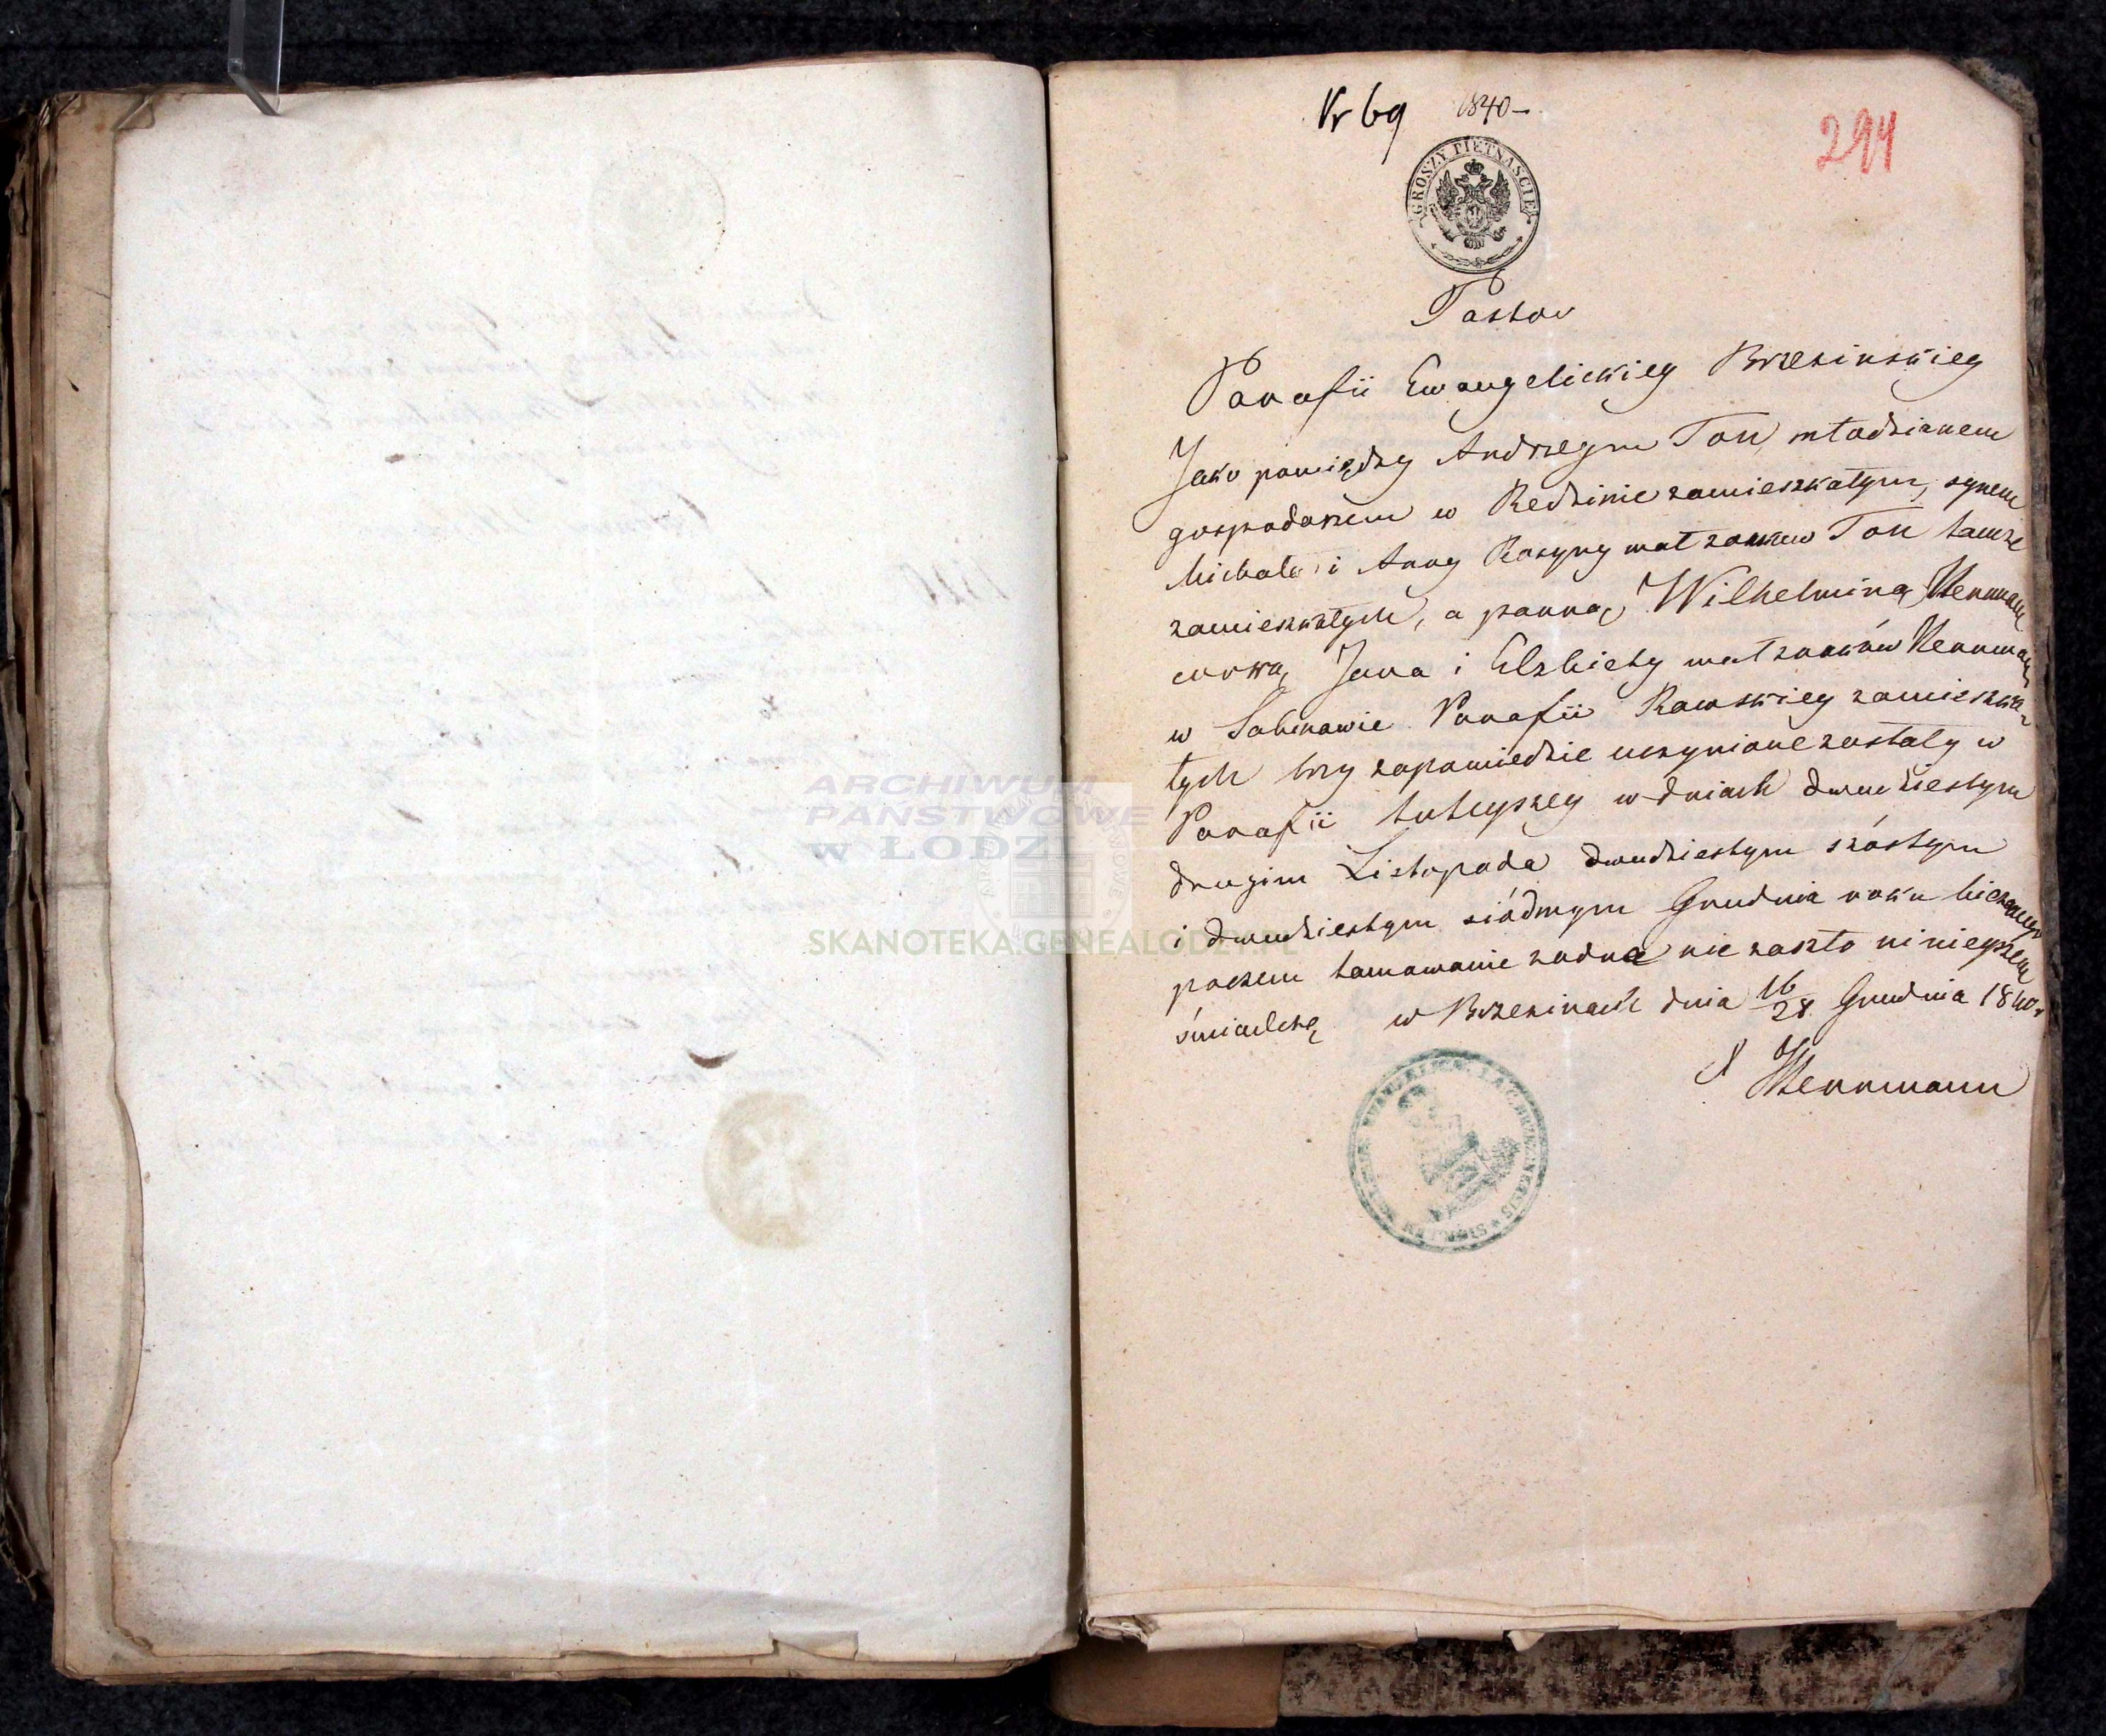 Nr 69 1840-
294
GROSZY PIĘTNAŚCIE
Pastor
Parafii Ewangelickiey Brzezinskiey
Jako pomiędzy Andrzeym Ton, młodzianem
gospodarzem w Redzinie zamieszkałym, synem
Michała i Anny Rozyny małżonków Ton tamże
zamieszkałych, a panną Wilhelminą Herrmann
corką Jana i Elzbiety małzonków Herrmann
w Parafii Rawskiey zamieszka-
łych trzy zapowiedzie uczynione zostały w
Parafii tuteyszey w dniach dwudziestym
drugim Listopada dwudziestym szóstym
i dwudziestym siódmym Grudnia roku bieżącego
poczem tamowanie zadne nie zaszło ninieyszem
świadczę w Brzezinach dnia 16/28 Grudnia 1840.
Herrmann
ARCHIWUM
PAŃSTWOWE
W ŁODZI
SKANOTEKA.GENEALODZY.PL